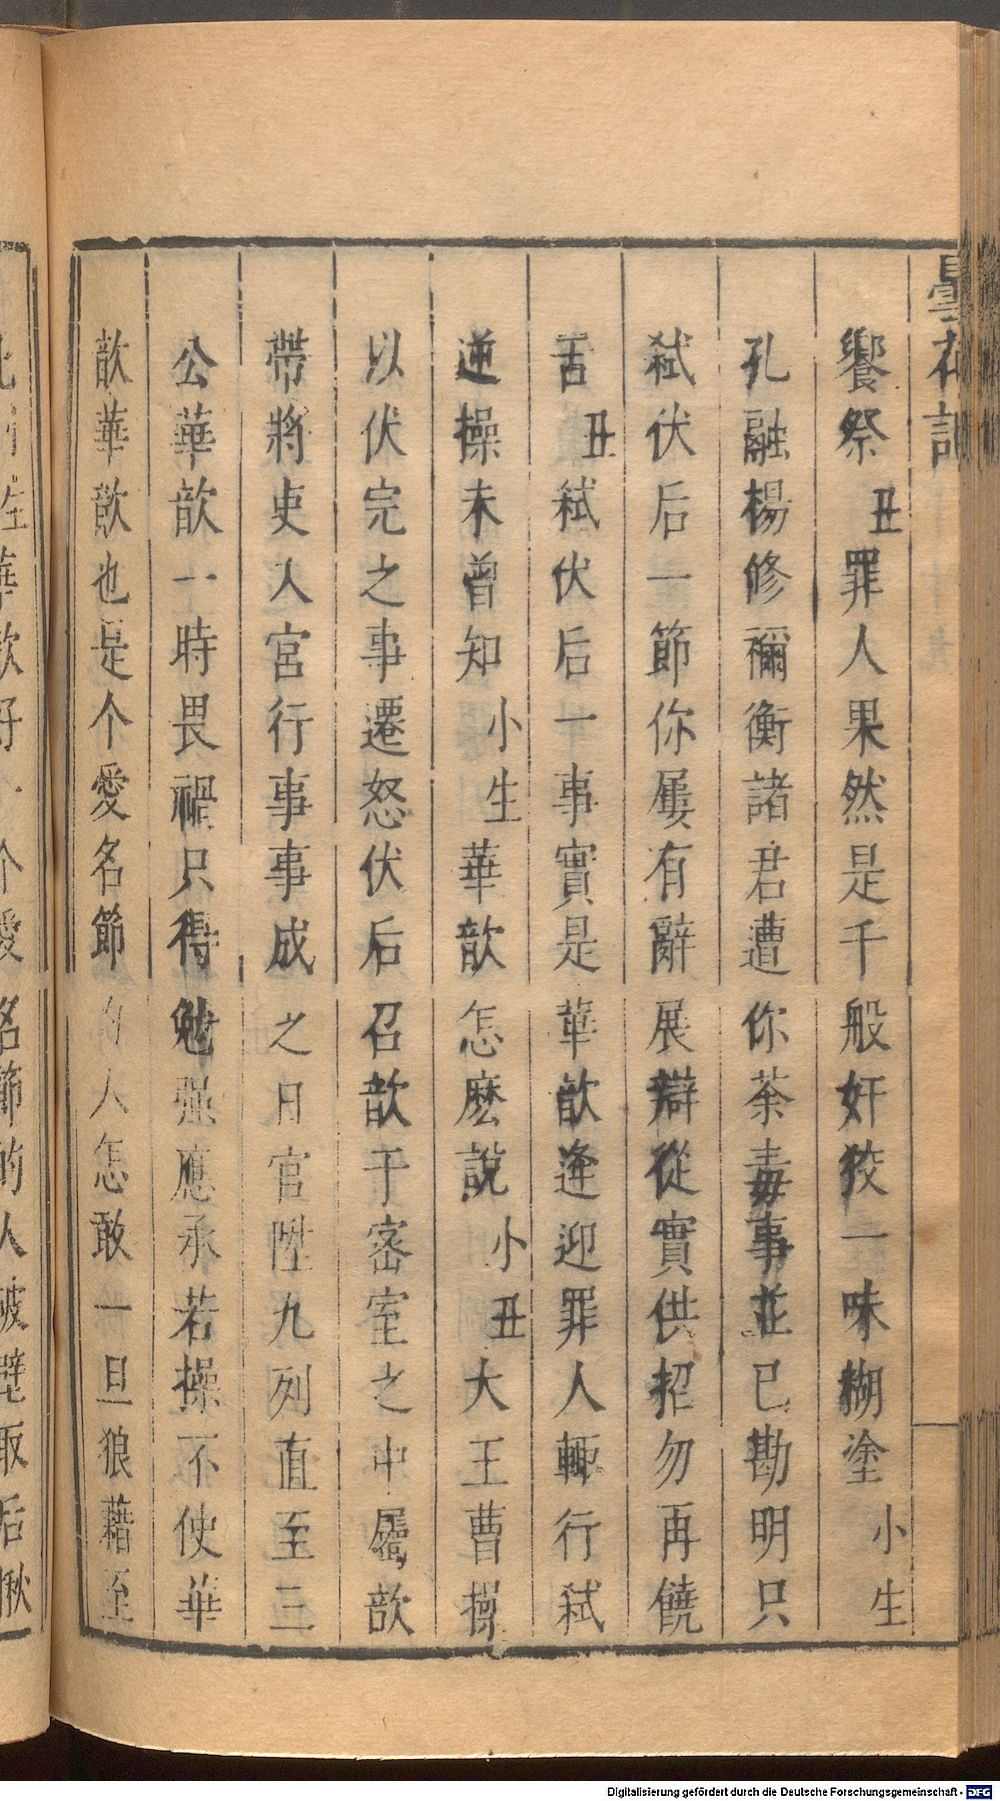 曇花記
饗祭丑罪人果然是千般奸狡一味糊塗小生
孔融楊修禰衡諸君遭你荼毒事並已勘明只
弒伏后一節你屢有辭展辯從實供招勿再饒
舌丑弒伏后一事實是華歆逢迎罪人輒行弒
逆操未曾知小生華歆怎麽說小丑大王曹操
以伏完之事遷怒伏后召歆于密室之中屬歆
帶將吏入宮行事事成之日官陞九列直至三
公華歆一時畏禍只得勉强應承若操不使華
歆華歆也是个愛名節的人怎敢一旦狼藉至
此小生華歆好一个愛名節的人破壁取后揪
Digitalisierung gefördert durch die Deutsche Forschungsgemeinschaft - DFG